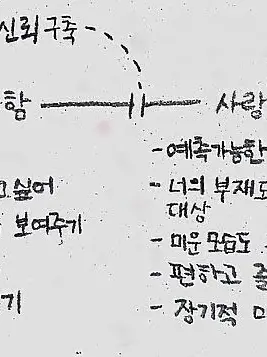 신뢰구축
함
사랑
- 예측가능한
고싶어
- 너의 부재도
대상
보여주기
- 미운모습도
- 편하고 즐
기
- 장기적